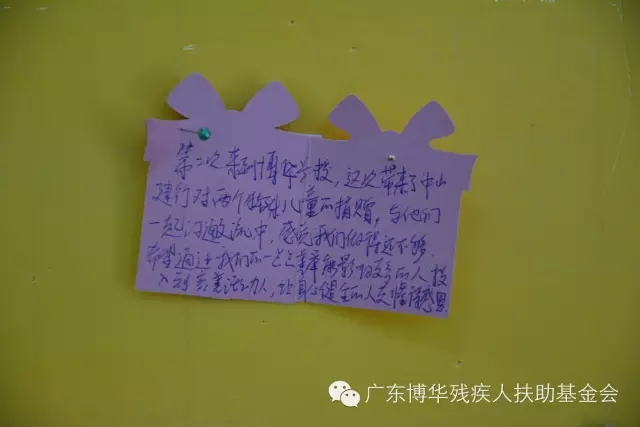 第二次来到博华学校，这次带来了中山
建行对两个特殊儿童的捐赠，与他们
一起沟通交流中，感觉我们做得还不够
希望通过我们的一些影响的人投
入到，让身心健全的人更懂得感恩
广东博华残疾人扶助基金会